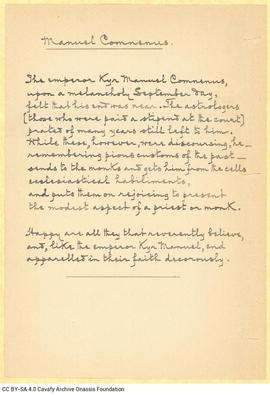 Manuel Comnenus.
The emperor Kyr Manuel Comnenus,
upon a melancholy September day,
felt that his end was near. The astrologers
(those who were paid a stipend at the court)
prated of many years still left to him.
While these, however, were discoursing, he—
remembering pious customs of the past—
sends to the monks and gets him from the cells
ecclesiastical habiliments,
and puts them on rejoicing to present
the modest aspect of a priest or monk.
Happy are all they that reverently believe,
and, like the emperor Kyr Manuel, end
apparelled in their faith decorously.
CC BY-SA 4.0 Cavafy Archive Onassis Foundation